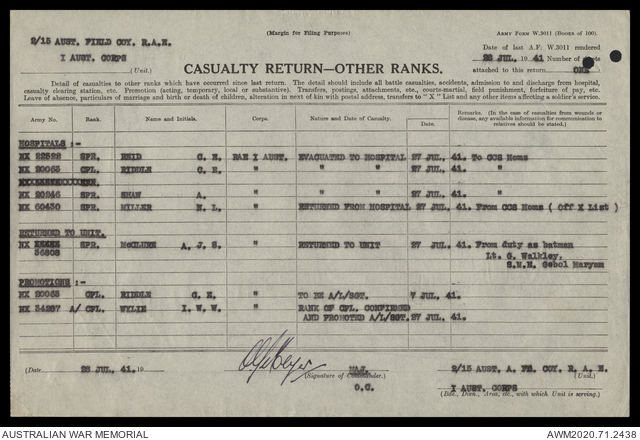 (Margin for Filing Purposes)
ARMY FORM W.3011 (BOOKS OF 100).
2/15 AUST. FIELD COY. R.A.E.
I AUST. CORPS
(Unit.)
Date of last A.F. W.3011 rendered
28 JUL, 19 41 Number of sheets
attached to this return ONE
CASUALTY RETURN—OTHER RANKS.
Detail of casualties to other ranks which have occurred since last return. The detail should include all battle casualties, accidents, admission to and discharge from hospital,
casualty clearing station, etc. Promotion (acting, temporary, local or substantive). Transfers, postings, attachments, etc., courts-martial, field punishment, forfeiture of pay, etc.
Leave of absence, particulars of marriage and birth or death of children, alteration in next of kin with postal address, transfers to "X" List and any other items affecting a soldier's service.
Army No. Rank. Name and Initials. Corps. Nature and Date of Casualty. Date. Remarks. (In the case of casualties from wounds or disease, any available information for communication to relatives should be stated.)
HOSPITALS :-
NX 22528 SPR. REID G. E. RAE I AUST. EVACUATED TO HOSPITAL 27 JUL, 41. To CCS Homs
NX 20063 CPL. RIDDLE G. H. " " " 27 JUL, 41. "
NX 20246 SPR. SHAW A. " " " 27 JUL, 41. "
NX 60430 SPR. MILLER N. L. " RETURNED FROM HOSPITAL 27 JUL, 41. From CCS Homs ( Off X List )
RETURNED TO UNIT.
NX 36808 SPR. McCLURE A. J. S. " RETURNED TO UNIT 27 JUL, 41. From duty as batman
Lt. G. Walkley.
S.M.E. Gebel Maryam
PROMOTIONS :-
NX 20063 CPL. RIDDLE G. H. " TO BE A/L/SGT. 7 JUL, 41.
NX 34287 A/ CPL. WYLIE I. W. W. " RANK OF CPL. CONFIRMED
AND PROMOTED A/L/SGT. 27 JUL, 41.
(Date 28 JUL, 41. 19
MAJ.
(Signature of Commander.)
O.C.
2/15 AUST. A. FD. COY. R. A. E.
(Unit.)
I AUST. CORPS
(Bde., Divn., Area, etc., with which Unit is serving.)
AUSTRALIAN WAR MEMORIAL
AWM2020.71.2438